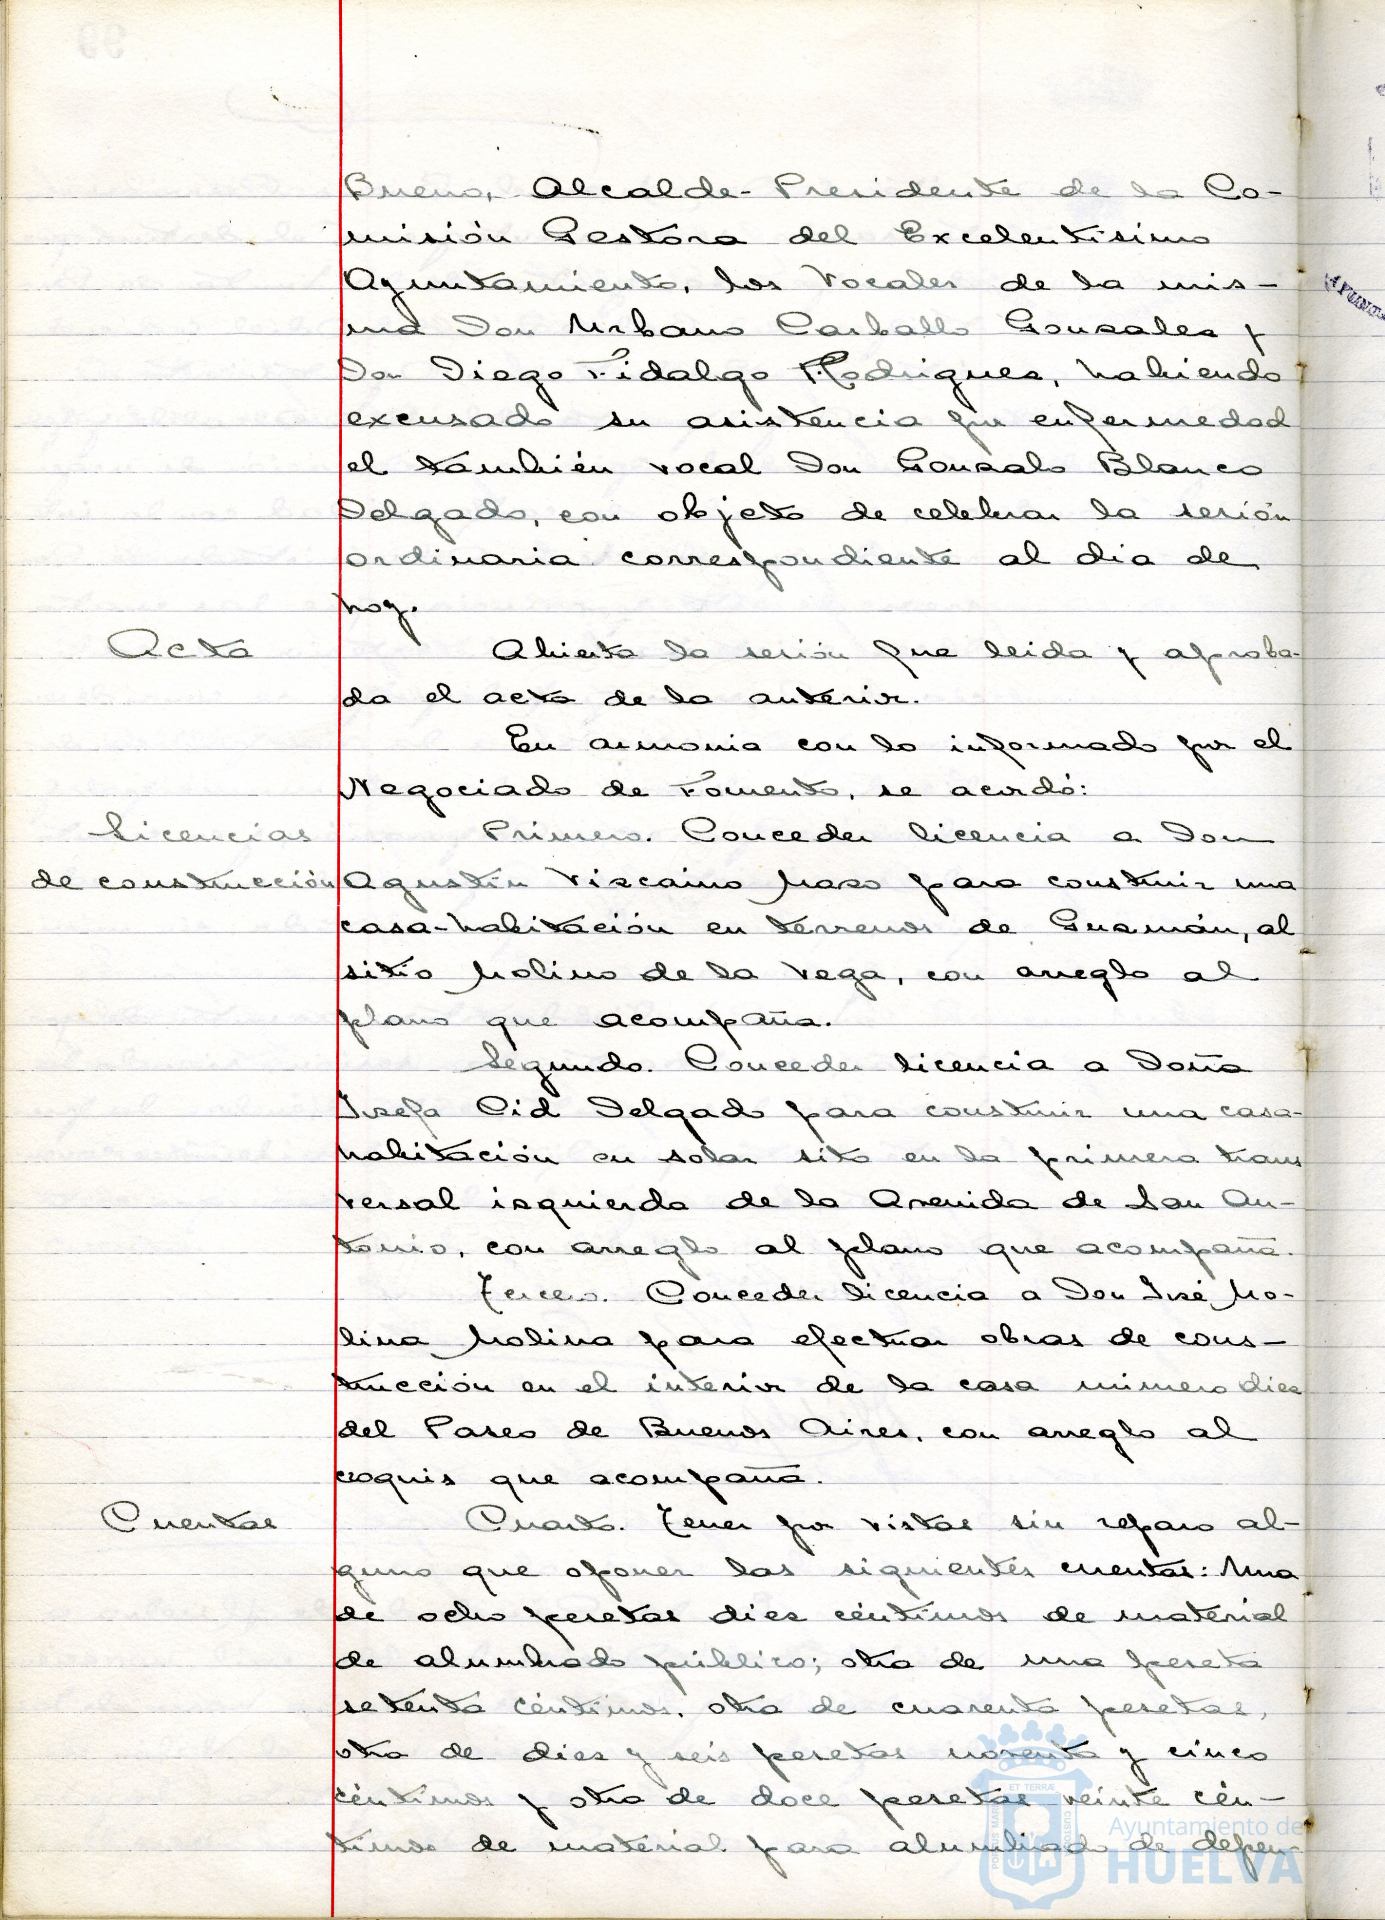 Bueno, Alcalde-Presidente de la Co-
misión Gestora del Excelentísimo
Ayuntamiento, los Vocales de la mis-
ma Don Urbano Carballo Gonzalez y
Don Diego Fidalgo Rodriguez, habiendo
excusado su asistencia por enfermedad
el también vocal Don Gonzalo Blanco
Delgado, con objeto de celebrar la sesión
ordinaria correspondiente al día de
hoy.
Acta
Abierta la sesión fue leida y aproba-
da el acta de la anterior.
En armonia con lo informado por el
Negociado de Fomento, se acordó:
Licencias
de construcción
Primero. Conceder licencia a Don
Agustín Vizcaino Mazo para construir una
casa-habitación en terrenos de Guzmán, al
sitio Molino de la Vega, con arreglo al
plano que acompaña.
Segundo. Conceder licencia a Doña
Josefa Cid Delgado para construir una casa-
habitación en solar sito en la primera trans
versal izquierda de la Avenida de San An-
tonio, con arreglo al plano que acompaña.
Tercero. Conceder licencia a Don José Mo-
lina Molina para efectuar obras de cons-
trucción en el interior de la casa número diez
del Paseo de Buenos Aires, con arreglo al
croquis que acompaña.
Cuentas
Cuarto. Tener por vistas sin reparo al-
guno que oponer las siguientes cuentas: Una
de ocho pesetas diez céntimos de material
de alumbrado público; otra de una peseta
setenta céntimos, otra de cuarenta pesetas,
otra de diez y seis pesetas noventa y cinco
céntimos y otra de doce pesetas veinte cén-
timos de material para alumbrado de depen-
Ayuntamiento de
HUELVA